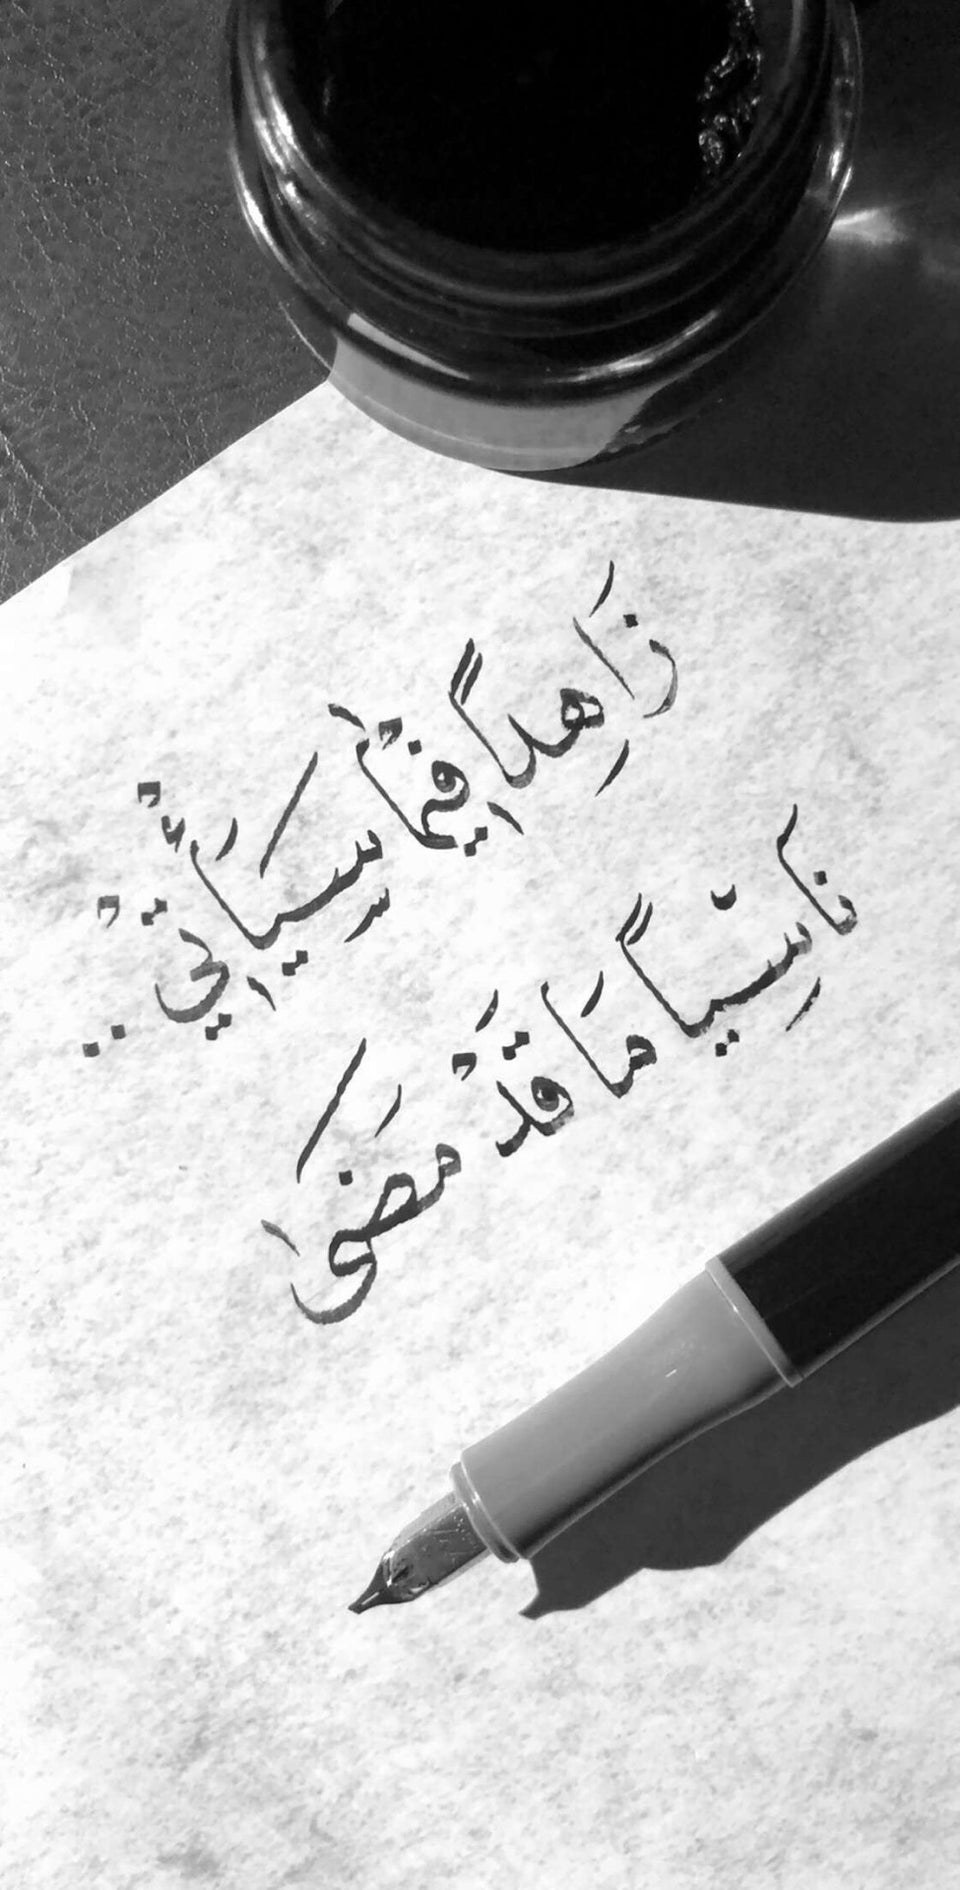 زَاهِداً فِيْمَا سَيَأْتِيْ ..
نَاسِيّاً مَا قَدْ مَضَى